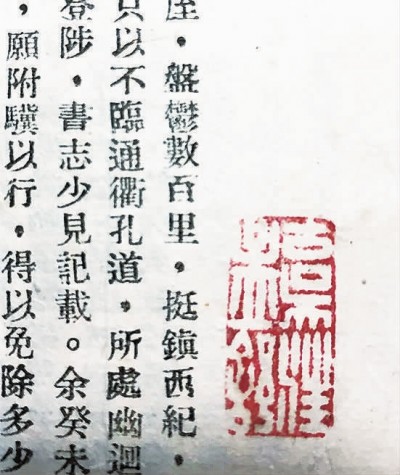 厓，盤鬱數百里，挺鎮西紀，
只以不臨通衢孔道，所處幽迴
登陟，書志少見記載。余癸未
，願附驥以行，得以免除多少